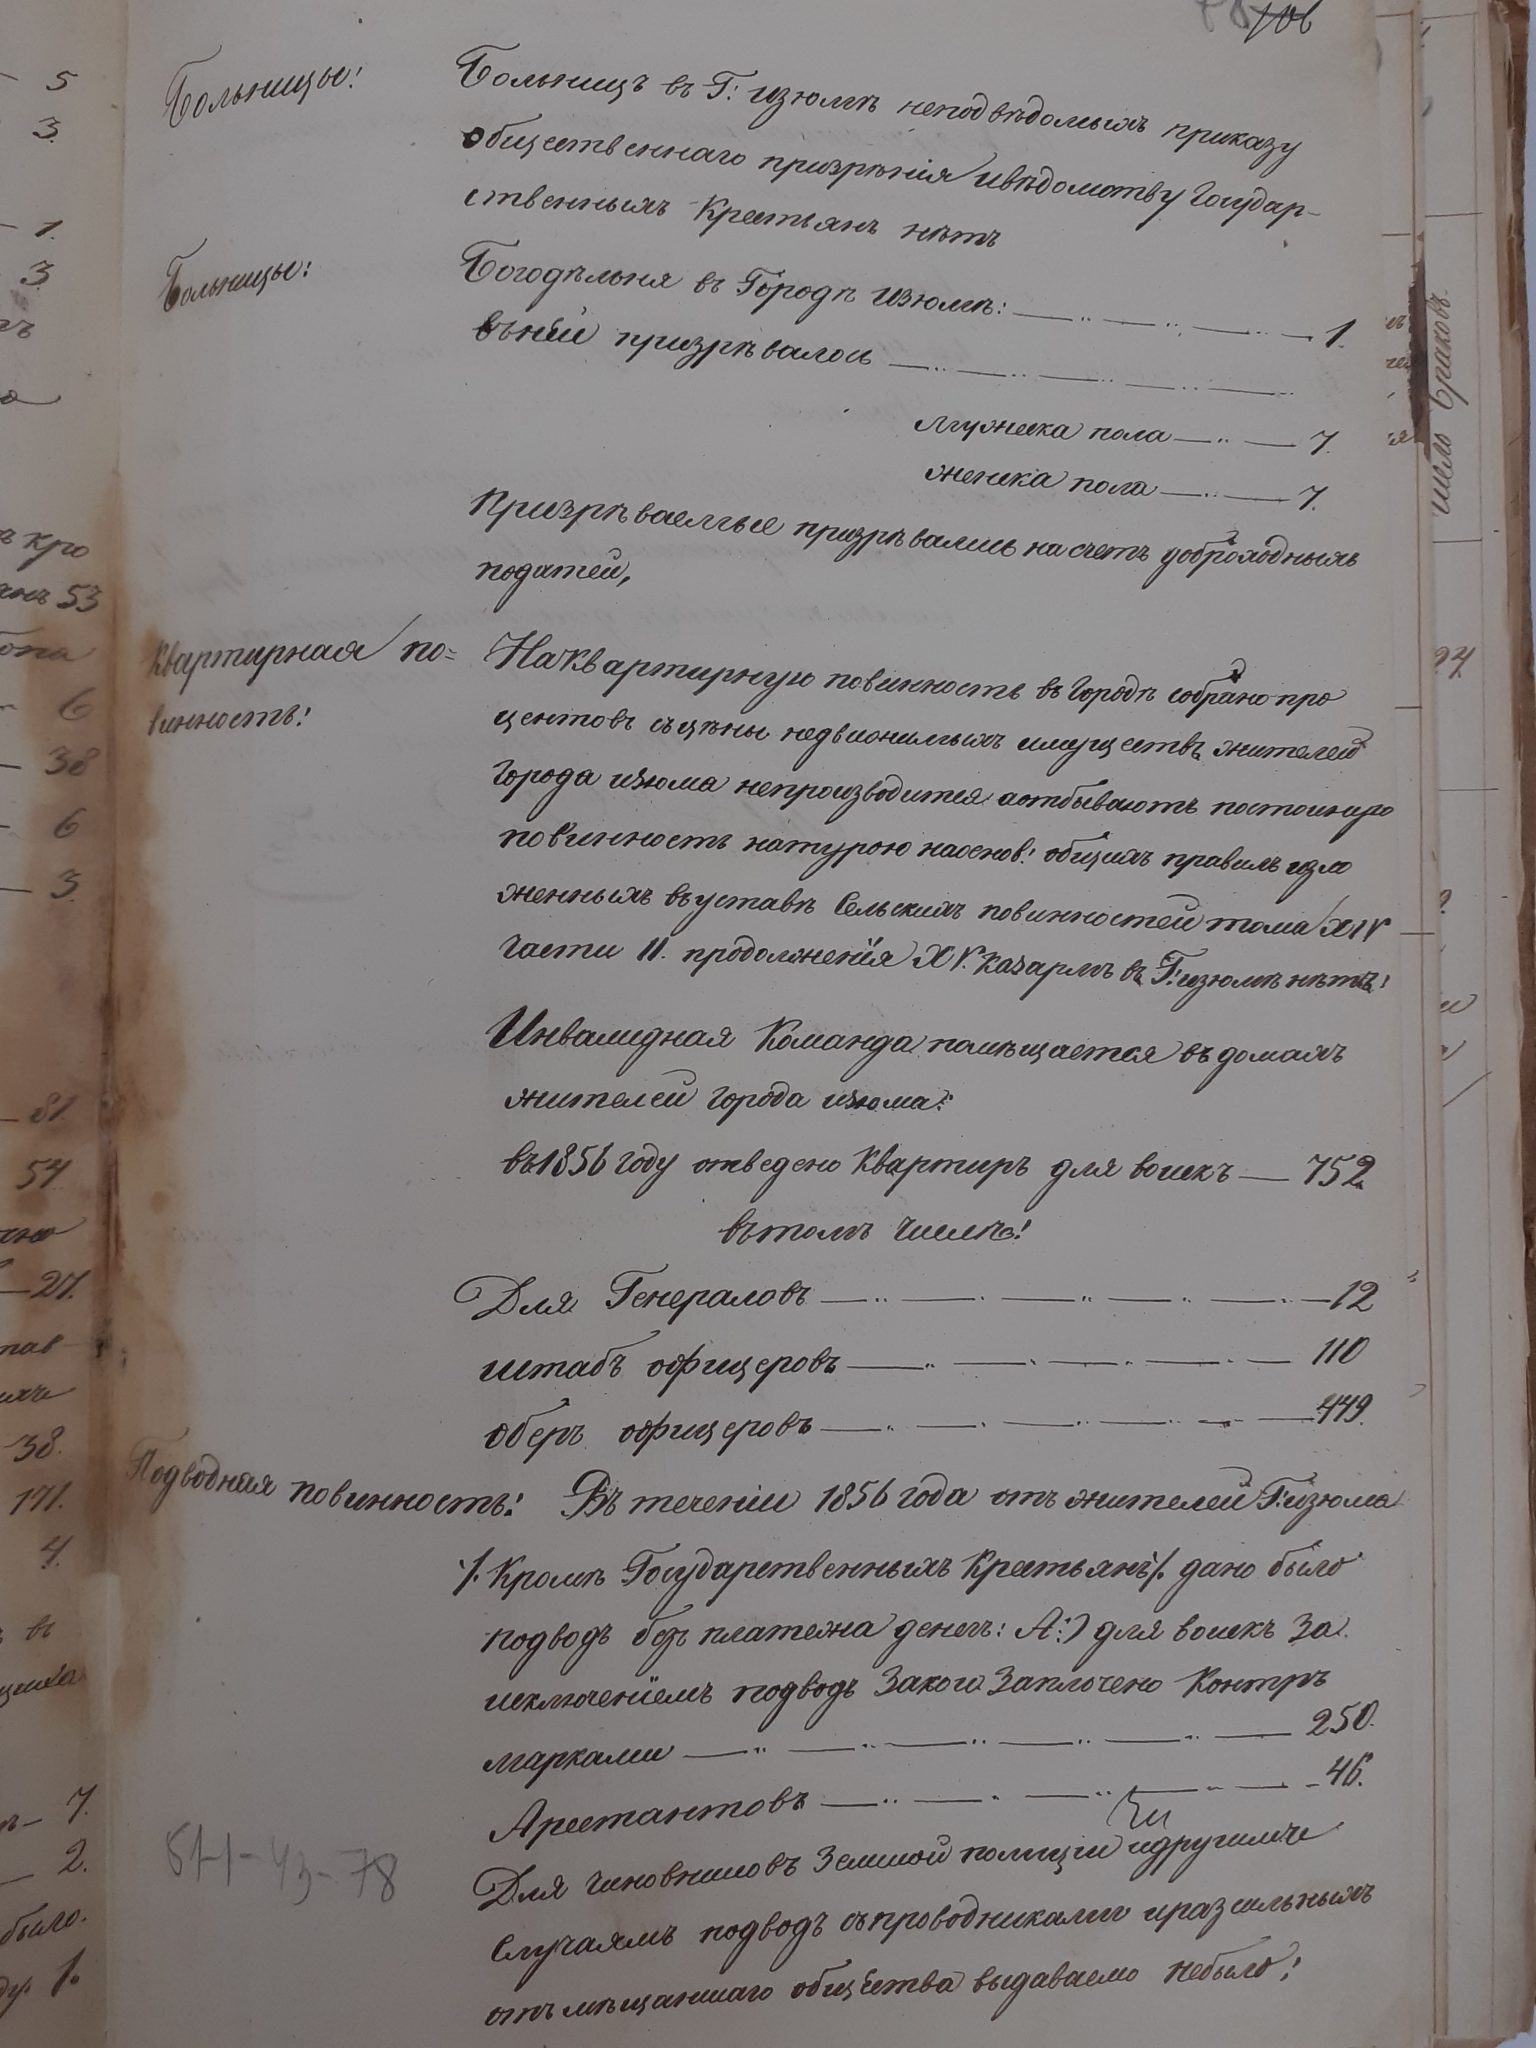 78 106
Больницы:
Больницъ въ Г: изюмѣ неподвѣдомыхъ приказу
общественнаго призрѣнія ивѣдомству Государ-
ственныхъ Крестьянъ нѣтъ
Больницы:
Богодѣльня въ Городѣ изюмѣ: 1.
въней призрѣвалось
мужска пола 7.
женска пола 7.
Призрѣваемые призрѣвались на счетъ доброходныхъ
податей,
Квартирная по=
винность:
На Квартирную повинность въ Городѣ собрано про
центовъ съ цѣны недвижимыхъ имуществъ жителей
Города изюма непроизводится аотбываютъ постойную
повинность натурою наоснов: общихъ правилъ изло
женныхъ въуставѣ Сельскихъ повинностей тома XIV
части II. продолженія XV. Казармъ въ Г: изюмѣ нѣтъ:
Инвалидная Команда помѣщается въ домахъ
жителей города изюма:
въ 1856 году отведено Квартиръ для воискъ 752
въ томъ числѣ:
Для Генераловъ 12
штабъ офицеровъ 110
оберъ офицеровъ 449.
Подводная повинность: Въ теченіи 1856 года отъ жителей Г: изюма
/. Кромѣ Государственныхъ Крестьянъ /. дано было
подводъ безъ платежа денегъ: А:) для воискъ За
исключеніемъ подводъ Закои Заплочено Контръ
марками 250.
Арестантовъ 46.
Для чиновниковъ Земской полиціи идругимъ
Случаямъ подводъ съпроводниками иразсыльныхъ
отъ мѣщанскаго общества выдаваемо небыло:
511-43-78
5
3.
1.
3.
кро
53
6
38
6
3.
81.
54
27.
38.
171.
4.
въ
7.
2.
было.
1.
число браковъ.